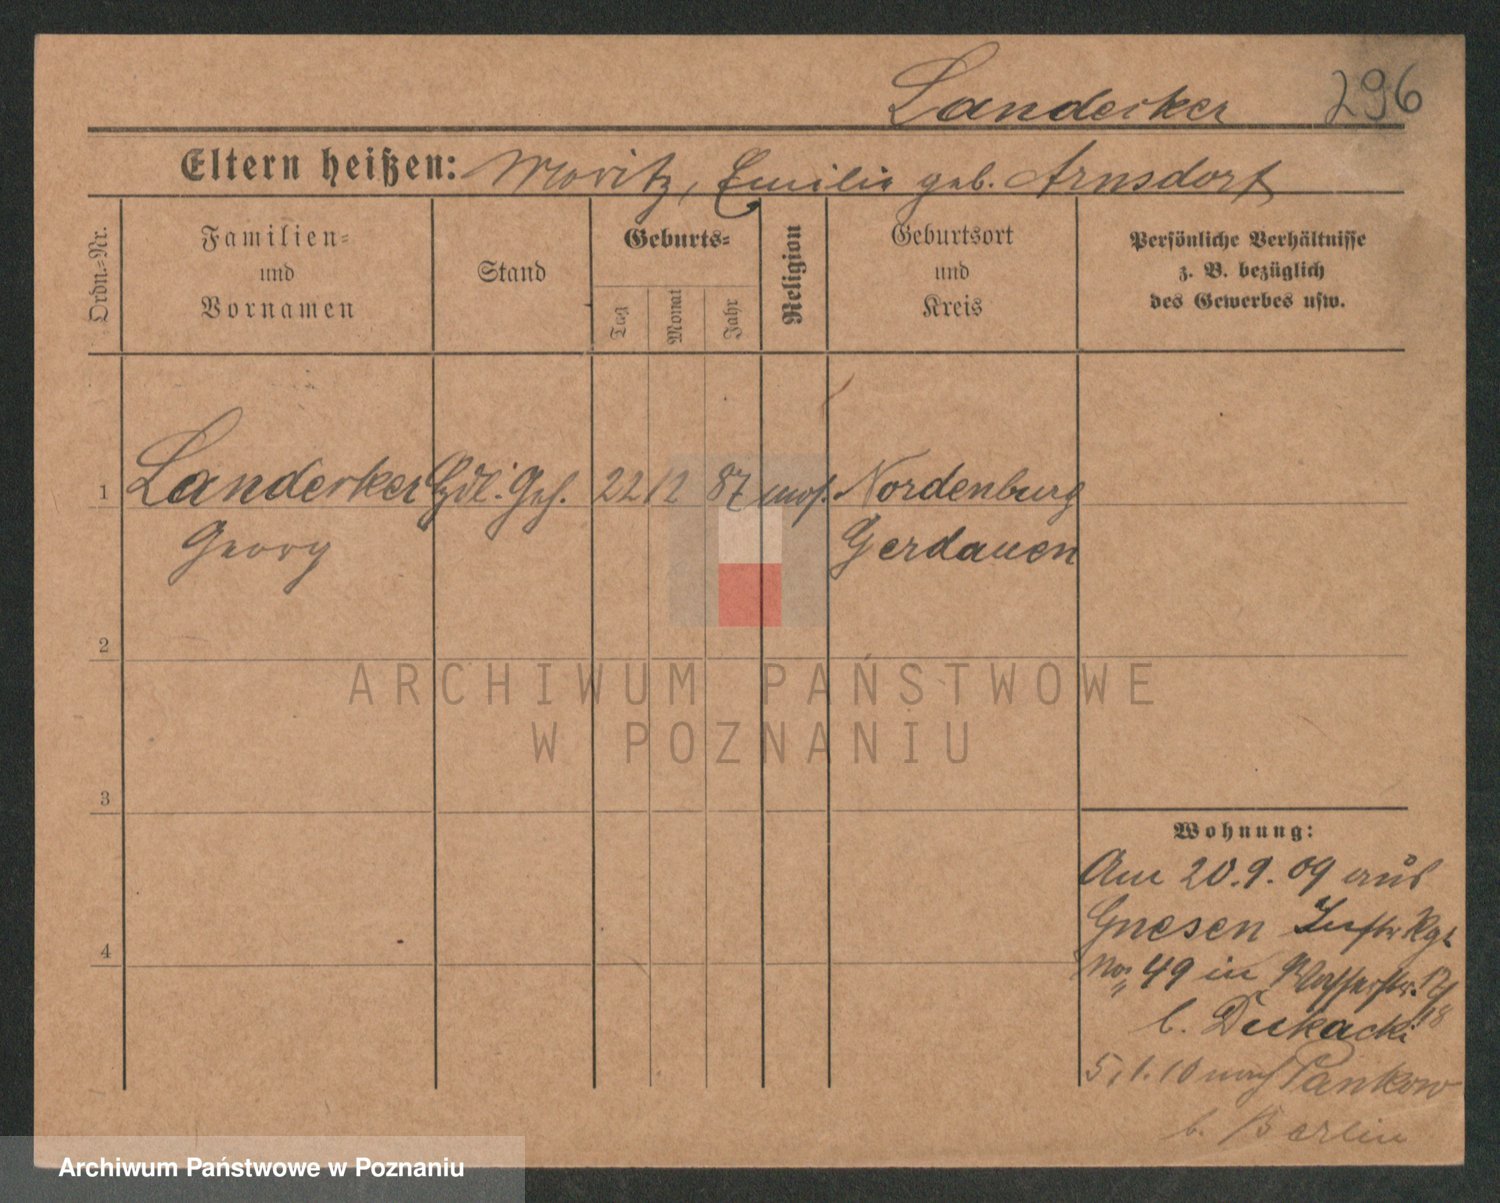 Landecker 296
Eltern heißen: Moritz, Emilie geb. Arnsdorf
Ordn.-Nr.
Familien-
und
Vornamen
Stand
Geburts-
Tag
Monat
Jahr
Religion
Geburtsort
und
Kreis
Persönliche Verhältnisse
z. B. bezüglich
des Gewerbes usw.
1 Landecker Hdl. Geh. 22 12 87 mos. Nordenburg
Georg Gerdauen
2
3
4
Wohnung:
Am 20.9.09 aus
Gnesen Inftr Rgt
No. 49 in Wasserstr. 17/
18
b. Dukacki
5.1.10 nach Pankow
b. Berlin
ARCHIWUM PAŃSTWOWE
W POZNANIU
Archiwum Państwowe w Poznaniu